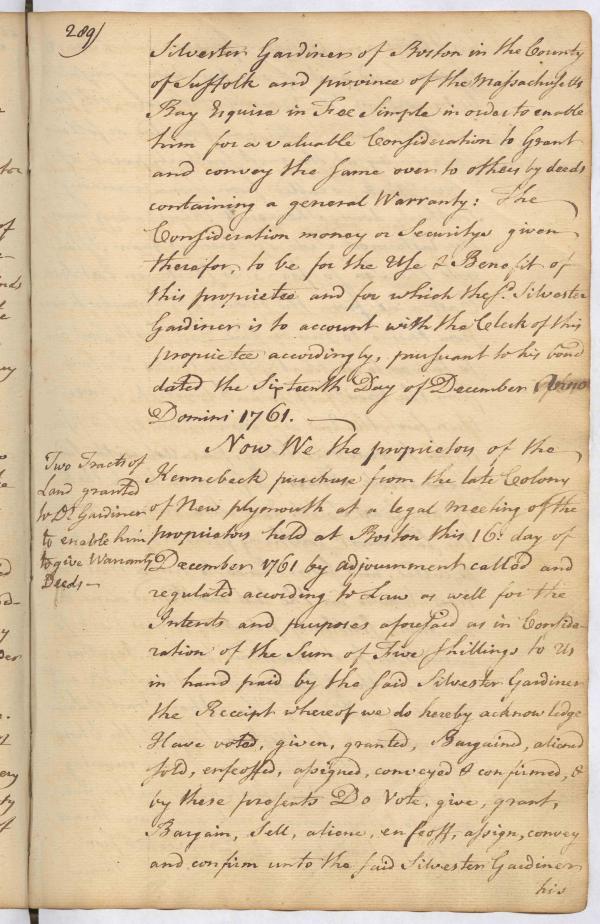 289)
Silvester Gardiner of Boston in the County
of Suffolk and province of the Massachusetts
Bay Esquire in Fee Simple in order to enable
him for a valuable Consideration to Grant
and convey the same over to others by deeds
containing a general Warranty: The
Consideration money or Securitys given
therefor, to be for the Use & Benefit of
this proprietee and for which the sd. Silvester
Gardiner is to account with the Clerk of this
proprietee accordingly, pursuant to his bond
dated the Sixteenth Day of December Anno
Domini 1761.
Now We the proprietors of the
Kennebeck purchase from the late Colony
of New plymouth at a legal meeting of the
proprietors held at Boston this 16: day of
December 1761 by adjournment called and
regulated according to Law as well for the
Intents and purposes aforesaid as in Conside-
ration of the Sum of Five shillings to Us
in hand paid by the said Silvester Gardiner
the Receipt whereof we do hereby acknowledge
Have voted, given, granted, Bargained, aliened
sold, enfeoffed, assigned, conveyed & confirmed, &
by these presents Do Vote, give, grant,
Bargain, Sell, aliene, enfeoff, assign, convey
and confirm unto the said Silvester Gardiner
his
Two Tracts of
Land granted
to Dr. Gardiner
to enable him
to give Warranty
Deeds